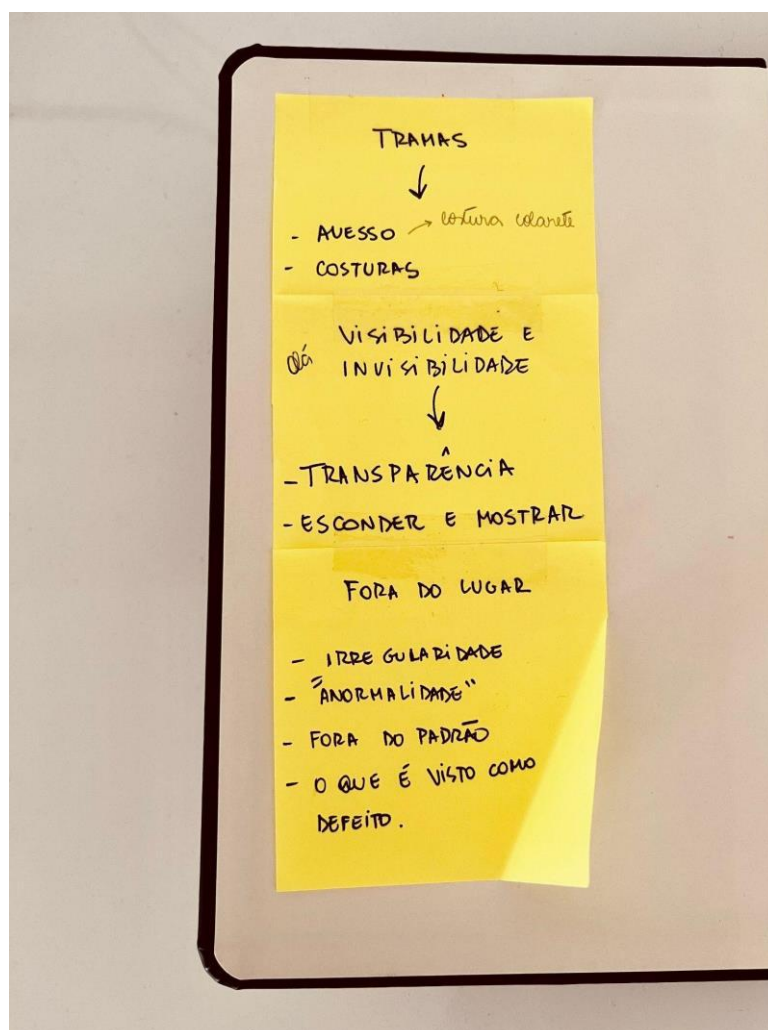 TRAMAS
↓
- AVESSO → costura colarete
- COSTURAS
VISIBILIDADE E
INVISIBILIDADE
↓
- TRANSPARÊNCIA
- ESCONDER E MOSTRAR
FORA DO LUGAR
- IRREGULARIDADE
- "ANORMALIDADE"
- FORA DO PADRÃO
- O QUE É VISTO COMO
DEFEITO.